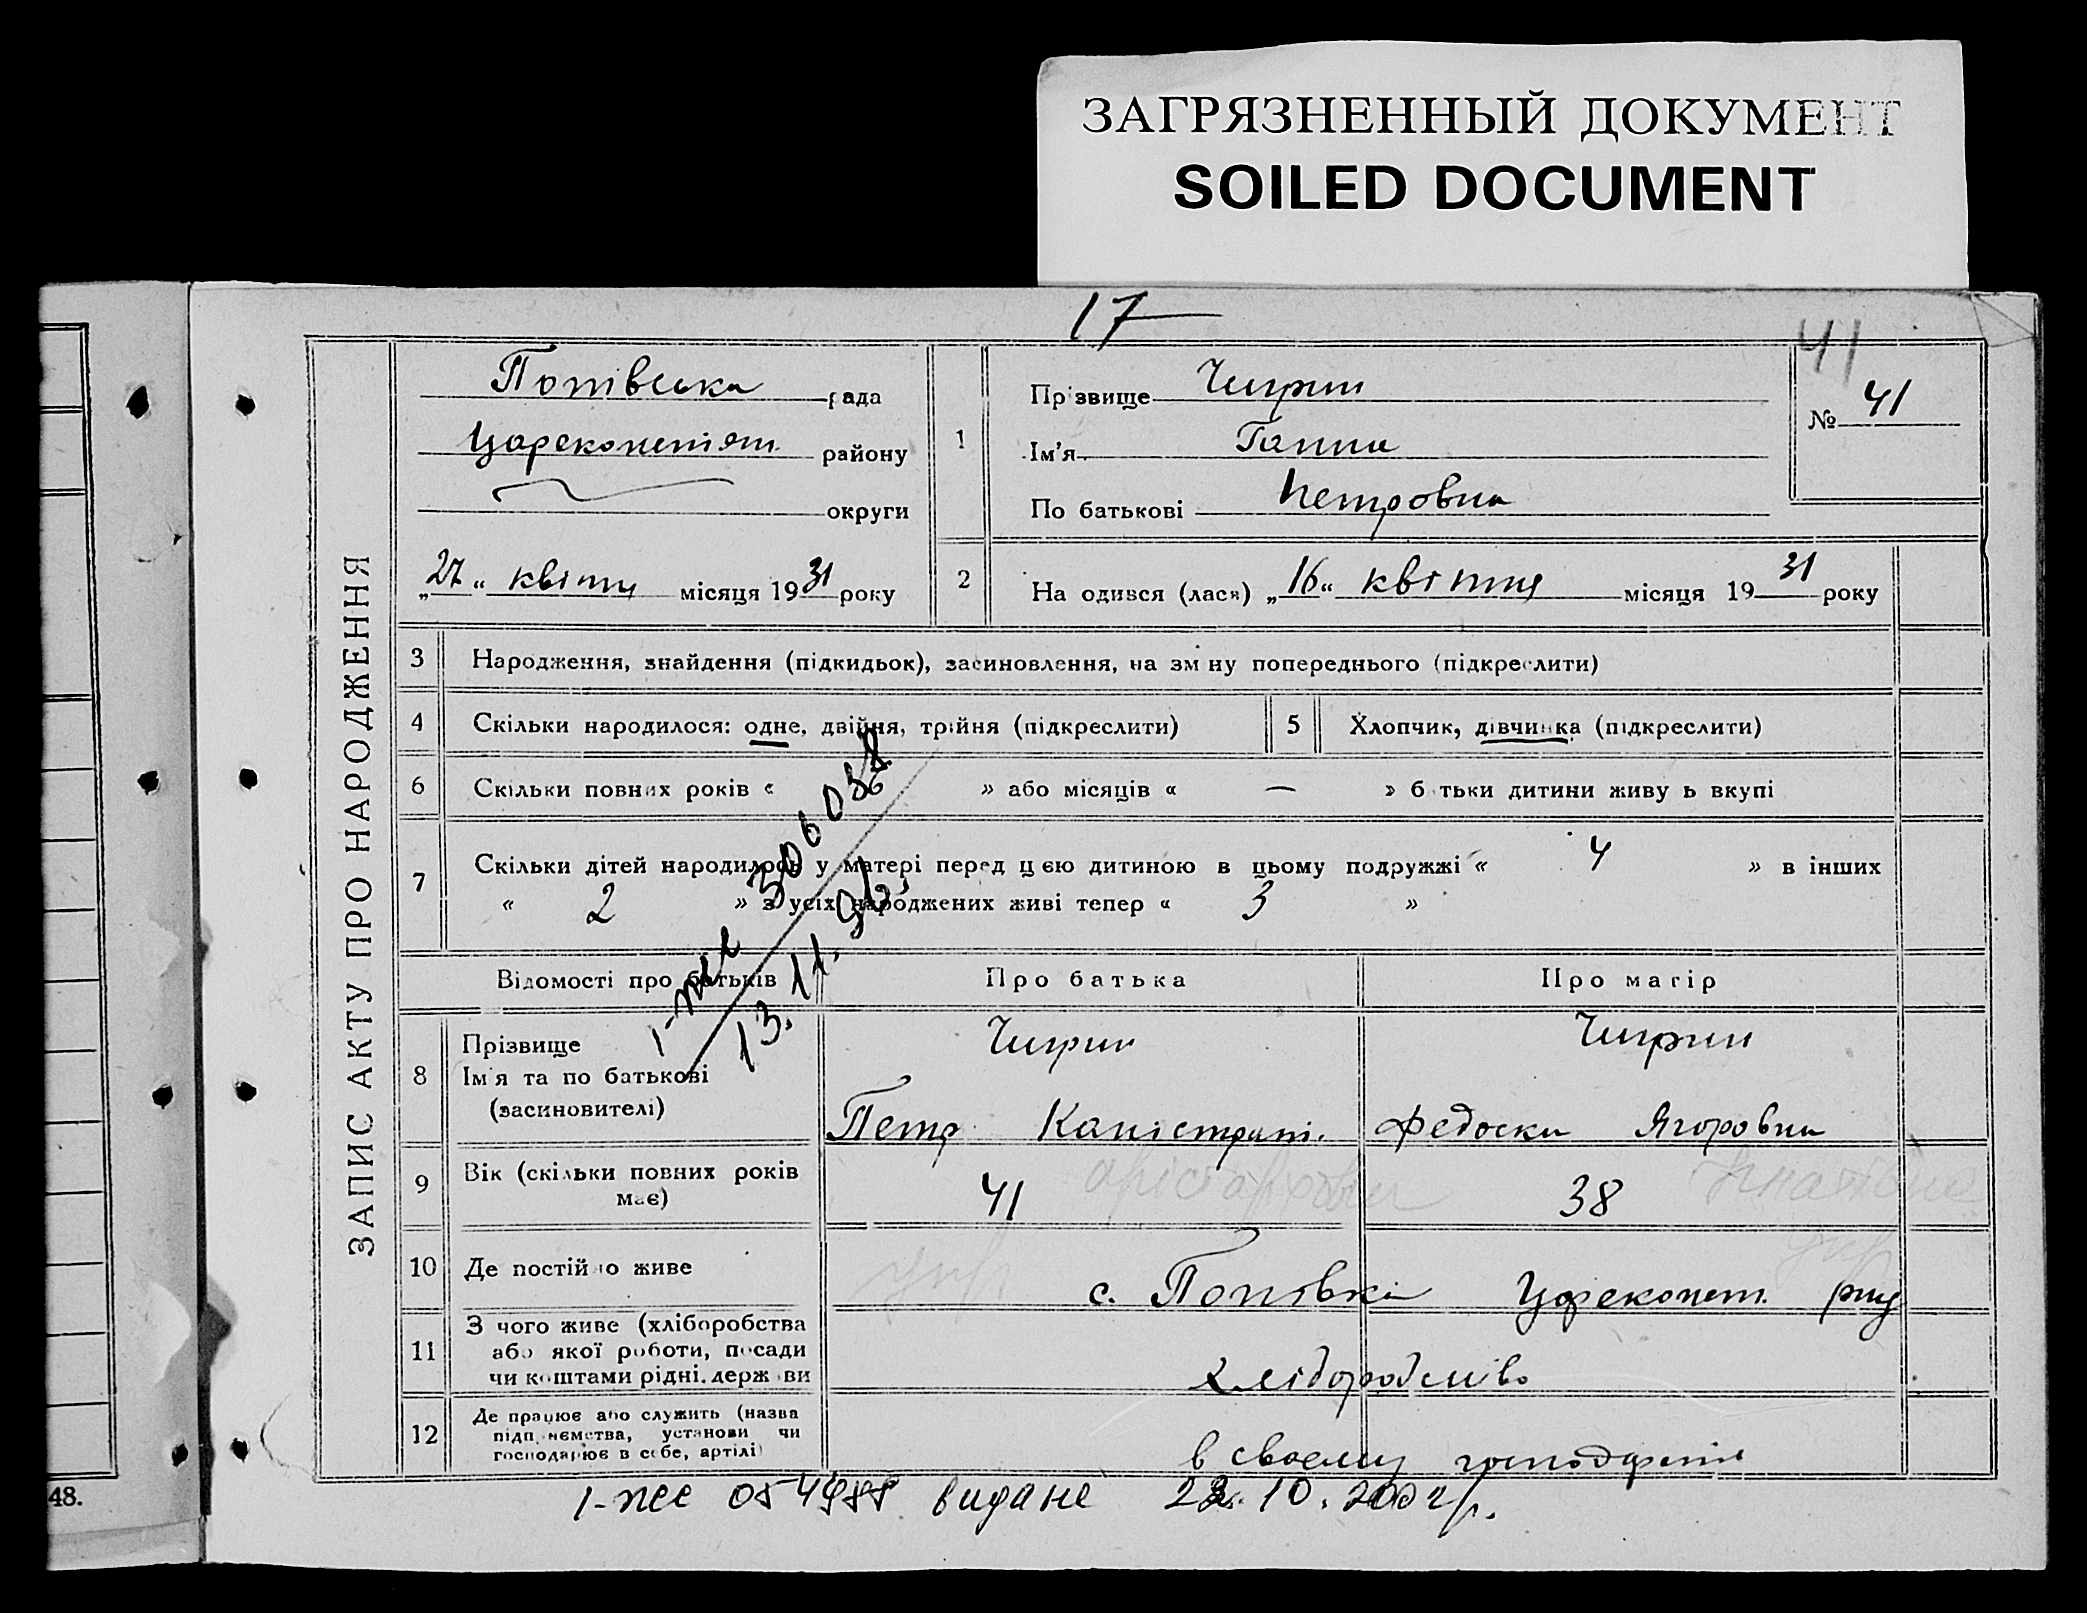 ЗАГРЯЗНЕННЫЙ ДОКУМЕНТ
SOILED DOCUMENT
17
41
ЗАПИС АКТУ ПРО НАРОДЖЕННЯ
Попівська рада
Цареконстянт. району
округи
„27“ квітня місяця 1931 року
1
Прізвище Чигрин
Ім'я Ганна
По батькові Петровна
№ 41
2 На одився (лася) „16“ квітня місяця 1931 року
3 Народження, знайдення (підкидьок), засиновлення, на зм ну попереднього (підкреслити)
4 Скільки народилося: одне, двійня, трійня (підкреслити) 5 Хлопчик, дівчинка (підкреслити)
6 Скільки повних років « » або місяців « — » б тьки дитини живу ь вкупі
7 Скільки дітей народилось у матері перед цією дитиною в цьому подружжі « 4 » в інших
« 2 » з усіх народжених живі тепер « 3 »
13.11.96.
Відомості про батьків Про батька Про матір
8 Прізвище Чигрин Чигрин
Ім'я та по батькові
(засиновителі) Петр Федоска Ягоровна
9 Вік (скільки повних років
має) 41 38
арістархович Гнатівна
укр укр
10 Де постійно живе с. Попівка Цареконст. рну
11 З чого живе (хліборобства
або якої роботи, посади
чи коштами рідні, держ ви хлібороб
12 Де працює або служить (назва
підп ємства, установи чи
господарює в себе, артілі) в своему господарстві
48.
видане 10.